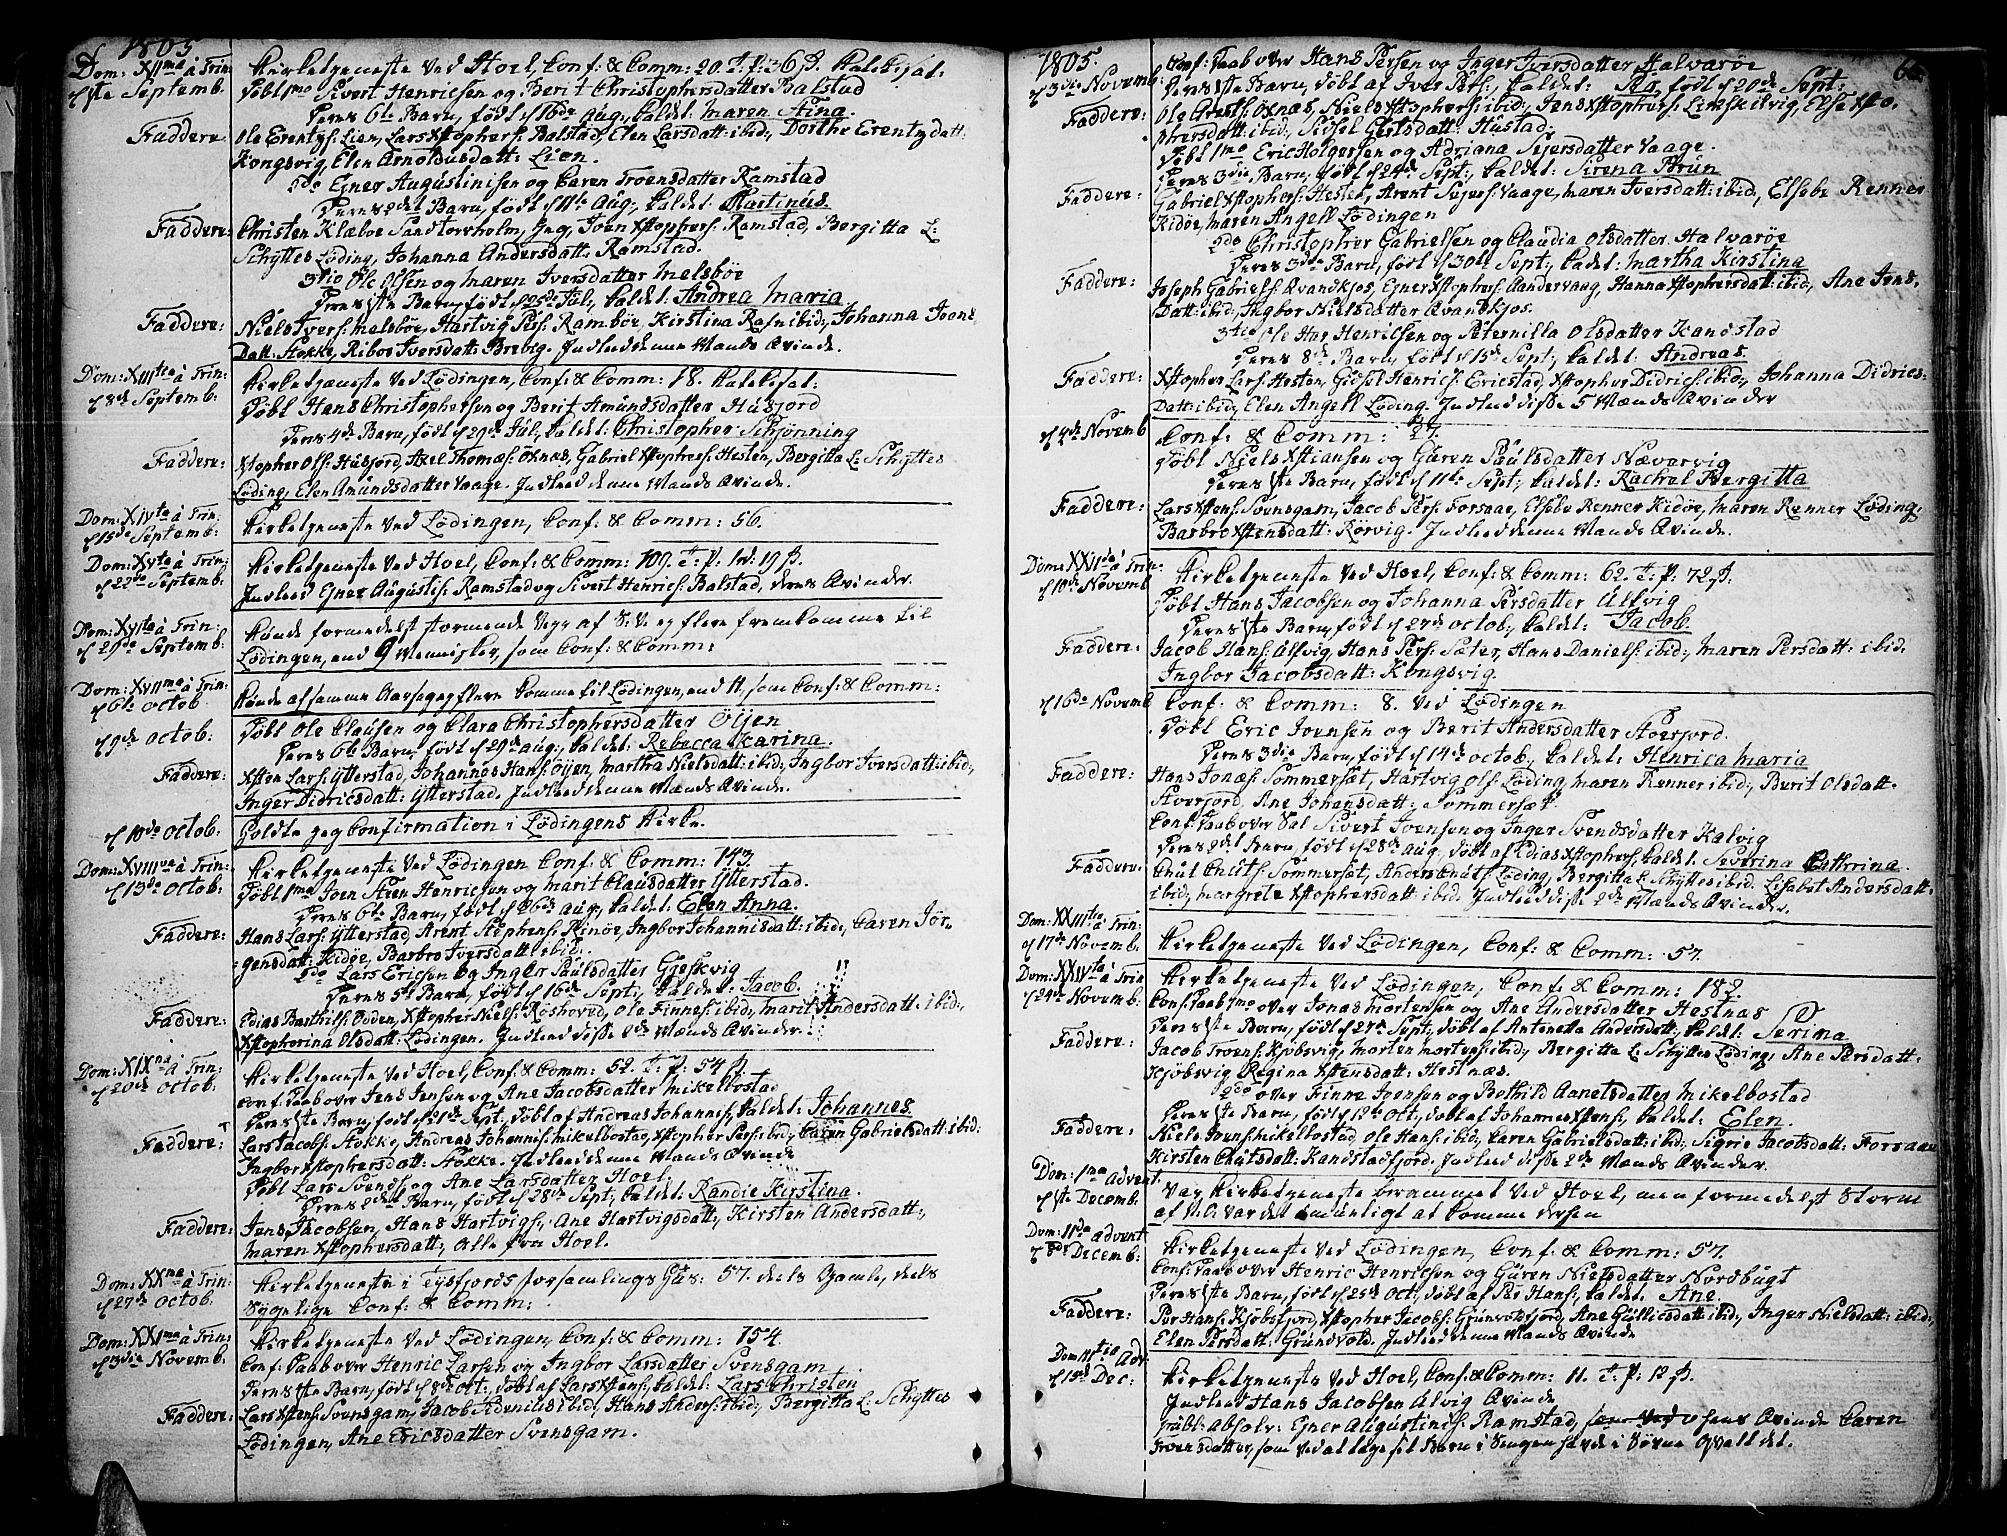 1805
Dom: XII ma à Trin: Kirketjeneste ved Hoel, Conf: & Comm: 20. T. p: 36 β. Katekisat:
d 1ste Septemb. Døbt 1mo Sivert Henricsen og Berit Christophersdatter Balstad
Deres 6te Barn, født d 16de Aug:, kaldet: Maren Stina.
Faddere: Ole Erentzs: Lien, Lars Xstophers: Balstad, Elen Larsdatt: ibid:, Dorthe Erentzdatt:
Kongsvig, Elen Arnoldusdatt: Lien.
2do Ejner Augustinisen og Caren Troensdatter Ramstad
Deres 2det Barn, født d 11te Aug:, kaldet: Rastinus.
Faddere: Christen Klæboe Sandtorvholm, Joen Xstophers: Ramstad, Bergitta L:
Schyttes Løding, Johanna Andersdatt: Ramstad.
3tio Ole Olsen og Maren Iversdatter Melsbøe
Deres 1ste Barn, født d 25de Jul:, kaldet: Andrea Maria.
Faddere: Niels Ivers: Melsbøe, Hartvig Pers: Rambøe, Kirstina Rafn ibid:, Johanna Joens
Datt: Stokke, Ribor Iversdatt: Brevig. Indleed denne Mands Qvinde.
Dom: XIII tia à Trin: Kirketjeneste ved Lødingen, Conf: & Comm: 18. Katekisat:
d 8de Septemb: Døbt Hans Christophersen og Berit Amundsdatter Husjord
Deres 4de Barn, født d 29de Jul:, kaldet: Christopher Schjønning
Faddere: Xstopher Ols: Husjord, Axel Thomæs: Oxnæs, Gabriel Xstophers: Hesten, Bergitta L: Schyttes
Løding, Elen Amundsdatter Vaage. Indleed denne Mands Qvinde.
Dom: XIV ta à Trin:
d 15de Septemb: Kirketjeneste ved Lødingen, Conf: & Comm: 56.
Dom: XV ta à Trin: Kirketjeneste ved Hoel, Conf: & Comm: 109. T. p: 19 β.
d 22de Septemb: Indleed Ejner Augustis: Ramstad og Sivert Henrics: Balstad, deres Qvinder.
Dom: XVI ta à Trin: Kunde formedelst stormende Vejr af S:V: ej flere fremkomme til
d 29de Septemb: Lødingen, end 9 Mennisker, som Conf: & Comm:
Dom: XVII ma à Trin: Kunde af samme Aarsag ej flere komme til Lødingen, end 11, som Conf: & Comm:
d 6te Octob:
d 9de Octob: Døbt Ole Clausen og Clara Christophersdatter Öijen
Deres 6te Barn, født d 29de Aug:, kaldet: Rebecca Karina.
Faddere: Xsten Lars: Ytterstad, Johannes Hans: Öijen, Martha Nielsdatt: ibid:, Ingbor Iversdatt: ibid:,
Inger Didricsdatt: Ytterstad. Indleed denne Mands Qvinde.
d 10de Octob: Holdte jeg Confirmation i Lødingens Kirke.
Dom: XVIII va à Trin: Kirketjeneste ved Lødingen Conf: & Comm: 143.
d 13de Octob: Døbt 1mo Joen Steen Henricsen og Marit Clausdatter Ytterstad.
Deres 6te Barn, født d 26de Aug:, kaldet: Elen Anna.
Faddere: Hans Lars: Ytterstad, Arent Stephens: Rinøe, Ingbor Johannisdatt: ibid:, Caren Jør=
gensdatt: Kidøe, Barbro Iversdatt: ibid.
2do Lars Ericsen og Inger Paulsdatter Gjeskvig
Deres 5te Barn, født d 16de Sept:, kaldet: Jacob.
Faddere: Edias Barthils: Odden, Xstopher Niels: Røshoved, Ole Finnes: ibid:, Marit Andersdatt: ibid:,
Xstopherina Olsdatt: Lødingen. Indleed disse 2de Mænds Qvinder.
Dom: XIX na à Trin: Kirketjeneste ved Hoel, Conf: & Comm: 52. T. p: 54 β.
d 20de Octob: Conf: Daab over Jens Jensen og Ane Jacobsdatter Mikelbostad
Deres 1ste Barn, født d 21de Sept:, døbt af Andreas Johannis:, kaldet: Johannes.
Faddere: Lars Jacobs: Stokke, Andreas Johannis: Mikelbostad, Xstopher Pers: ibid:, Caren Gabrielsdatt: ibid:
Ingbor Xstophersdatt: Stokke. Indleed denne Mands Qvinde
Døbt Lars Svends: og Ane Larsdatter Hoel.
Deres 2det Barn, født d 28de Sept:, kaldet: Randie Kirstina.
Faddere: Jens Jacobsen, Hans Hartvigs:, Ane Hartvigsdatt:, Kirsten Andersdatt:,
Maren Xstophersdatt:, alle fra Hoel.
Dom: XX ma à Trin: Kirketjeneste i Tysfjords Forsamlings Huus: 57. deels Gamle, deels
d 27de Octob. Sygelige Conf: & Comm:
Dom: XXI ma à Trin: Kirketjeneste ved Lødingen, Conf: & Comm: 154.
d 3die Novemb. Conf: Daab over Henric Larsen og Ingbor Larsdatter Svensgam
Deres 1ste Barn, født d 8de Oct:, døbt af Lars Xstens:, kaldet: Lars Christen
Faddere: Lars Xstens: Svensgam, Jacob Adenius ibid:, Hans Anders: ibid:, Bergitta L: Schyttes
Lødingen, Ane Ericsdatter Svensgam.
1805.
66.
d 3die Novemb: Conf: Daab over Hans Persen og Inger Iversdatter Halvarøe
Deres 1ste Barn, døbt af Iver Pers:, kaldet: født d 20de Sept:
Faddere: Ole Arents: Oxnæs, Niels Xstophers: ibid:, Jens Xstophers: Limskilvig, Else Xsto=
phersdatt: ibid:, Sidsel Gertsdatt: Hustad.
Døbt 1mo Eric Holgersen og Adriana Sejersdatter Vaage.
Deres 3die Barn, født d 24de Sept:, kaldet: Sirena Brun
Faddere: Gabriel Xstophers: Hesten, Arent Sejers: Vaage, Maren Iversdatt: ibid:, Elsebe Renner
Kidøe, Maren Angell Lødingen
2do Christopher Gabrielsen og Claudia Olsdatter Halvarøe
Deres 3die Barn, født d 30te Sept:, kaldet: Martha Kirstina
Faddere: Joseph Gabriels: Qvandkjos, Ejner Xstophers: Sandervaag, Hanna Xstophersdatt: ibid:, Ane Jens=
Datt: ibid:, Ingbor Nielsdatter Qvandkjos.
3tio Ole Har Henricsen og Peternilla Olsdatter Kandstad
Deres 8de Barn, født d 15de Sept:, kaldet: Andreas.
Faddere: Xstopher Lars: Hesten, Gidsel Henrics: Ericstad, Xstopher Didrics: ibid:, Johanna Didrics=
Datt: ibid:, Elen Angell Løding. Indleed disse 5 Mænds Qvinder
d 4de Novemb Conf: & Comm: 27.
Døbt Niels Xstiansen og Guren Paulsdatter Nævarvig
Deres 1ste Barn, født d 11te Sept:, kaldet: Rachel Bergitta
Faddere: Lars Xstens: Svensgam, Jacob Pers: Forsaae, Elsebe Renner Kidøe, Maren Renner Løding,
Barbro Xstensdatt: Rørvig. Indleed denne Mands Qvinde.
Dom: XXII da à Trin: Kirketjeneste ved Hoel, Conf: & Comm: 62. T. p: 72 β.
d 10de Novemb Døbt Hans Jacobsen og Johanna Persdatter Ulfvig
Deres 1ste Barn, født d 27de Octob:, kaldet: Jacob.
Faddere: Jacob Hans: Alfvig, Hans Pers: Sæter, Hans Daniels: ibid:, Maren Persdatt: ibid:
Ingbor Jacobsdatt: Kongsvig.
d 16de Novemb Conf: & Comm: 8. ved Lødingen
Døbt Eric Joensen og Berit Andersdatter Stoerfjord.
Deres 3die Barn, født d 14de Octob:, kaldet: Henrica Maria
Faddere: Hans Jonæs: Sommersæt, Hartvig Ols: Løding, Maren Renner ibid:, Berit Olsdatt:
Stoerfjord, Ane Johansdatt: Sommersæt.
Conf: Daab over Sal Sivert Joensen og Inger Svendsdatter Kalvig
Deres 2det Barn, født d 28de Aug, døbt af Edias Xstophers:, kaldet: Severina Cathrina.
Faddere: Chnut Chnuts: Sommersæt, Anders Chnuts: Løding, Bergitta L: Schyttes ibid:, Lisabet Andersdatt:
ibid:, Margrete Xstophersdatt: ibid. Indleed disse 2de Mænds Qvinder.
Dom: XXIII tia à Trin:
d 17de Novemb: Kirketjeneste ved Lødingen, Conf: & Comm: 57.
Dom: XXIV ta à Trin Kirketjeneste ved Lødingen, Conf: & Comm: 182.
d 24de Novemb: Conf: Daab 1mo over Jonas Mortensen og Ane Andersdatter Hestnæs
Deres 1ste Barn, født d 27de Sept:, døbt af Antonetta Andersdatt:, kaldet: Serina
Faddere: Jacob Troens: Kjøbsvig, Morten Mortens: ibid:, Bergitta L: Schyttes Løding, Ane Persdatt:
Kjøbsvig Regina Xstensdatt: Hestnæs.
2do over Finne Joensen og Bothild Aanetsdatter Mikelbostad
Deres 1ste Barn, født d 12te Oct:, døbt af Johannes Xstens:, kaldet: Elen.
Faddere: Niels Joens: Mikelbostad, Ole Hans: ibid:, Caren Gabrielsdatt: ibid:, Sigrie Jacobsdatt: Forsaae
Kirsten Chnutsdatt: Kandstadfjord. Indleed disse 2de Mænds Qvinder.
Dom: 1ma Advent Var Kirketjeneste berammet ved Hoel, men formedelst Storm
d 1ste Decemb. af N:V: var det umueligt at komme dersen
Dom: IIda Advent Kirketjeneste ved Lødingen, Conf: & Comm: 57.
d 8de Decemb: Conf: Daab over Henric Henricsen og Guren Nielsdatter Nordbugt
Deres 1ste Barn, født d 25de Oct:, døbt af Per Hans:, kaldet. Ane.
Faddere: Per Hans: Kjøbsfjord, Xstopher Jacobs: Grunvolsfjord, Ane Gullicsdatt: ibid:, Inger Nielsdatt: ibid:,
Elen Persdatt: Grundvold. Indleed denne Mands Qvinde
Dom IIItia Adv: Kirketjeneste ved Hoel, Conf: & Comm: 11. T. p: 12 β.
d 15de Dec: Indleed Hans Jacobsen Alvig Qvinde
Publ: Absolv: Ejner Augustinis: Ramstad, hans Qvinde Caren
Troensdatter, som ved at tage sit Barn i Sengen havde i Søvne qvalt det.